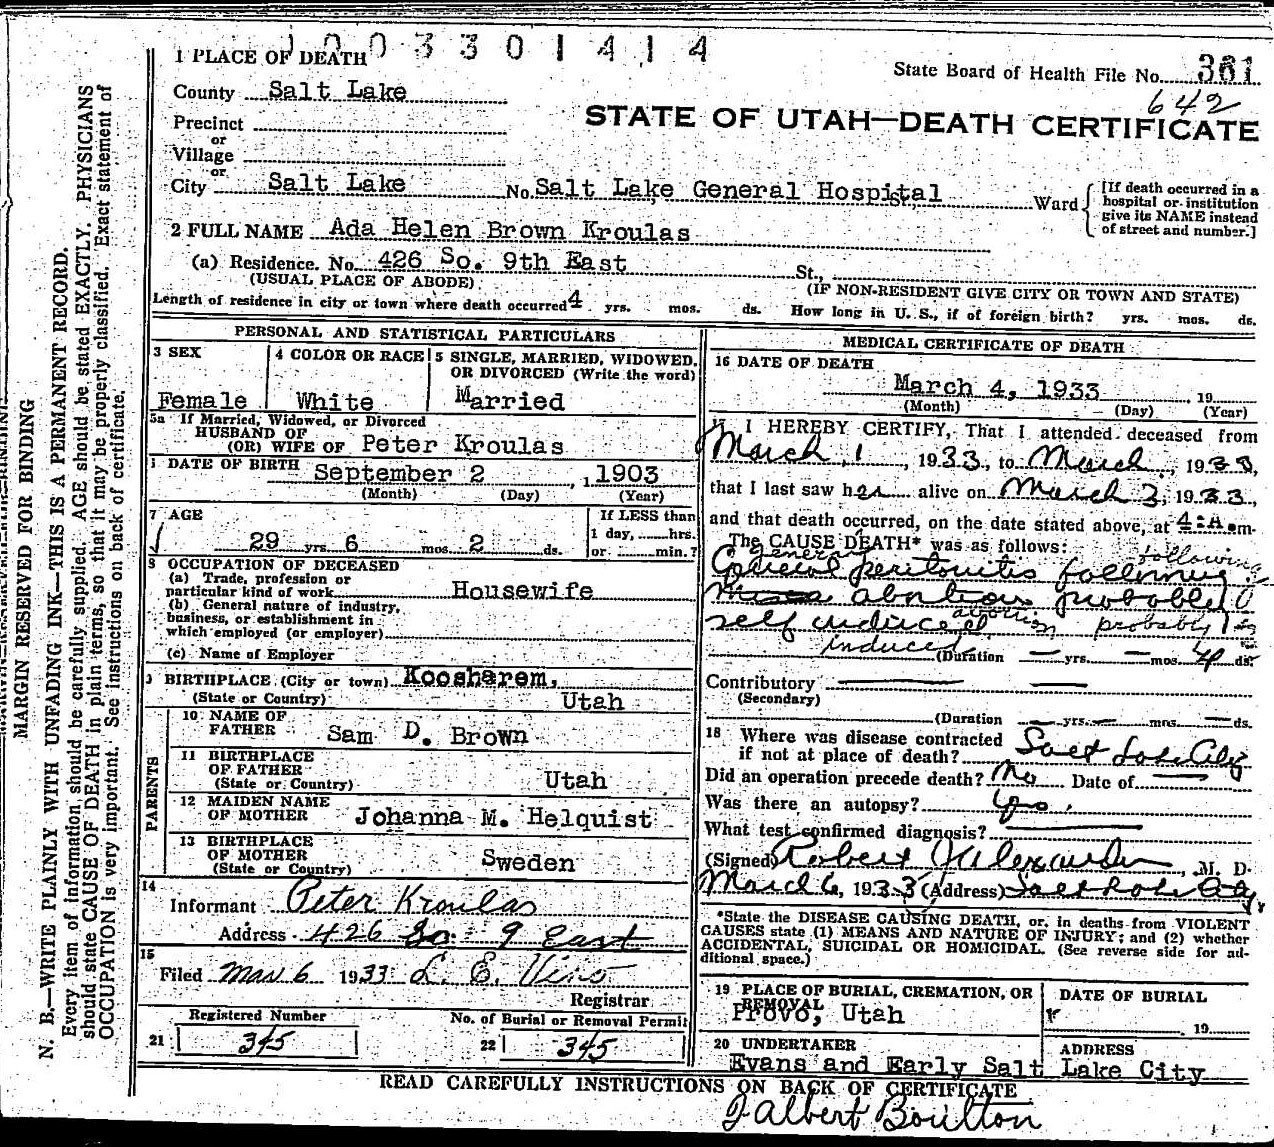 1003301414
1 PLACE OF DEATH
State Board of Health File No. 361
642
County Salt Lake
STATE OF UTAH—DEATH CERTIFICATE
Precinct
or
Village
or
City Salt Lake No. Salt Lake General Hospital St., Ward
[If death occurred in a hospital or institution give its NAME instead of street and number.]
2 FULL NAME Ada Helen Brown Kroulas
(a) Residence. No. 426 So. 9th East St.,
(USUAL PLACE OF ABODE) (IF NON-RESIDENT GIVE CITY OR TOWN AND STATE)
Length of residence in city or town where death occurred 4 yrs. mos. ds. How long in U. S., if of foreign birth? yrs. mos. ds.
PERSONAL AND STATISTICAL PARTICULARS
3 SEX
Female
4 COLOR OR RACE
White
5 SINGLE, MARRIED, WIDOWED, OR DIVORCED (Write the word)
Married
5a If Married, Widowed, or Divorced
HUSBAND OF
(OR) WIFE OF Peter Kroulas
DATE OF BIRTH September 2, 1903
(Month) (Day) (Year)
7 AGE
29 yrs. 6 mos. 2 ds.
If LESS than
1 day, hrs.
or min.?
8 OCCUPATION OF DECEASED
(a) Trade, profession or
particular kind of work Housewife
(b) General nature of industry,
business, or establishment in
which employed (or employer)
(c) Name of Employer
BIRTHPLACE (City or town) Koosharem,
(State or Country) Utah
PARENTS
10 NAME OF
FATHER Sam D. Brown
11 BIRTHPLACE
OF FATHER
(State or Country) Utah
12 MAIDEN NAME
OF MOTHER Johanna M. Helquist
13 BIRTHPLACE
OF MOTHER
(State or Country) Sweden
14
Informant Peter Kroulas
Address 426 So. 9 East
15
Filed Mar 6 1933 L. E. Viko
Registrar
Registered Number
21 345
No. of Burial or Removal Permit
22 345
MEDICAL CERTIFICATE OF DEATH
16 DATE OF DEATH
March 4, 1933 19
(Month) (Day) (Year)
I HEREBY CERTIFY, That I attended deceased from
March 1, 1933, to March, 1933,
that I last saw her alive on March 3, 1933,
and that death occurred, on the date stated above, at 4:A.m.
The CAUSE DEATH* was as follows:
general following
peritonitis following
abortion probably
self induced abortion probably
induced
(Duration — yrs. — mos. 4 ds.
Contributory
(Secondary)
(Duration — yrs. — mos. — ds.
18 Where was disease contracted
if not at place of death? Salt Lake City
Did an operation precede death? No Date of
Was there an autopsy? Yes.
What test confirmed diagnosis?
(Signed) Robert J Alexander, M. D.
March 6, 1933 (Address) Salt Lake City.
*State the DISEASE CAUSING DEATH, or, in deaths from VIOLENT
CAUSES state (1) MEANS AND NATURE OF INJURY; and (2) whether
ACCIDENTAL, SUICIDAL OR HOMICIDAL. (See reverse side for ad-
ditional space.)
19 PLACE OF BURIAL, CREMATION, OR
REMOVAL
Provo, Utah
DATE OF BURIAL
19
20 UNDERTAKER ADDRESS
Evans and Early Salt Lake City
READ CAREFULLY INSTRUCTIONS ON BACK OF CERTIFICATE
J Albert Boulton
MARGIN RESERVED FOR BINDING
N. B.—WRITE PLAINLY WITH UNFADING INK—THIS IS A PERMANENT RECORD.
Every item of information should be carefully supplied. AGE should be stated EXACTLY. PHYSICIANS
should state CAUSE OF DEATH in plain terms, so that it may be properly classified. Exact statement of
OCCUPATION is very important. See instructions on back of certificate.